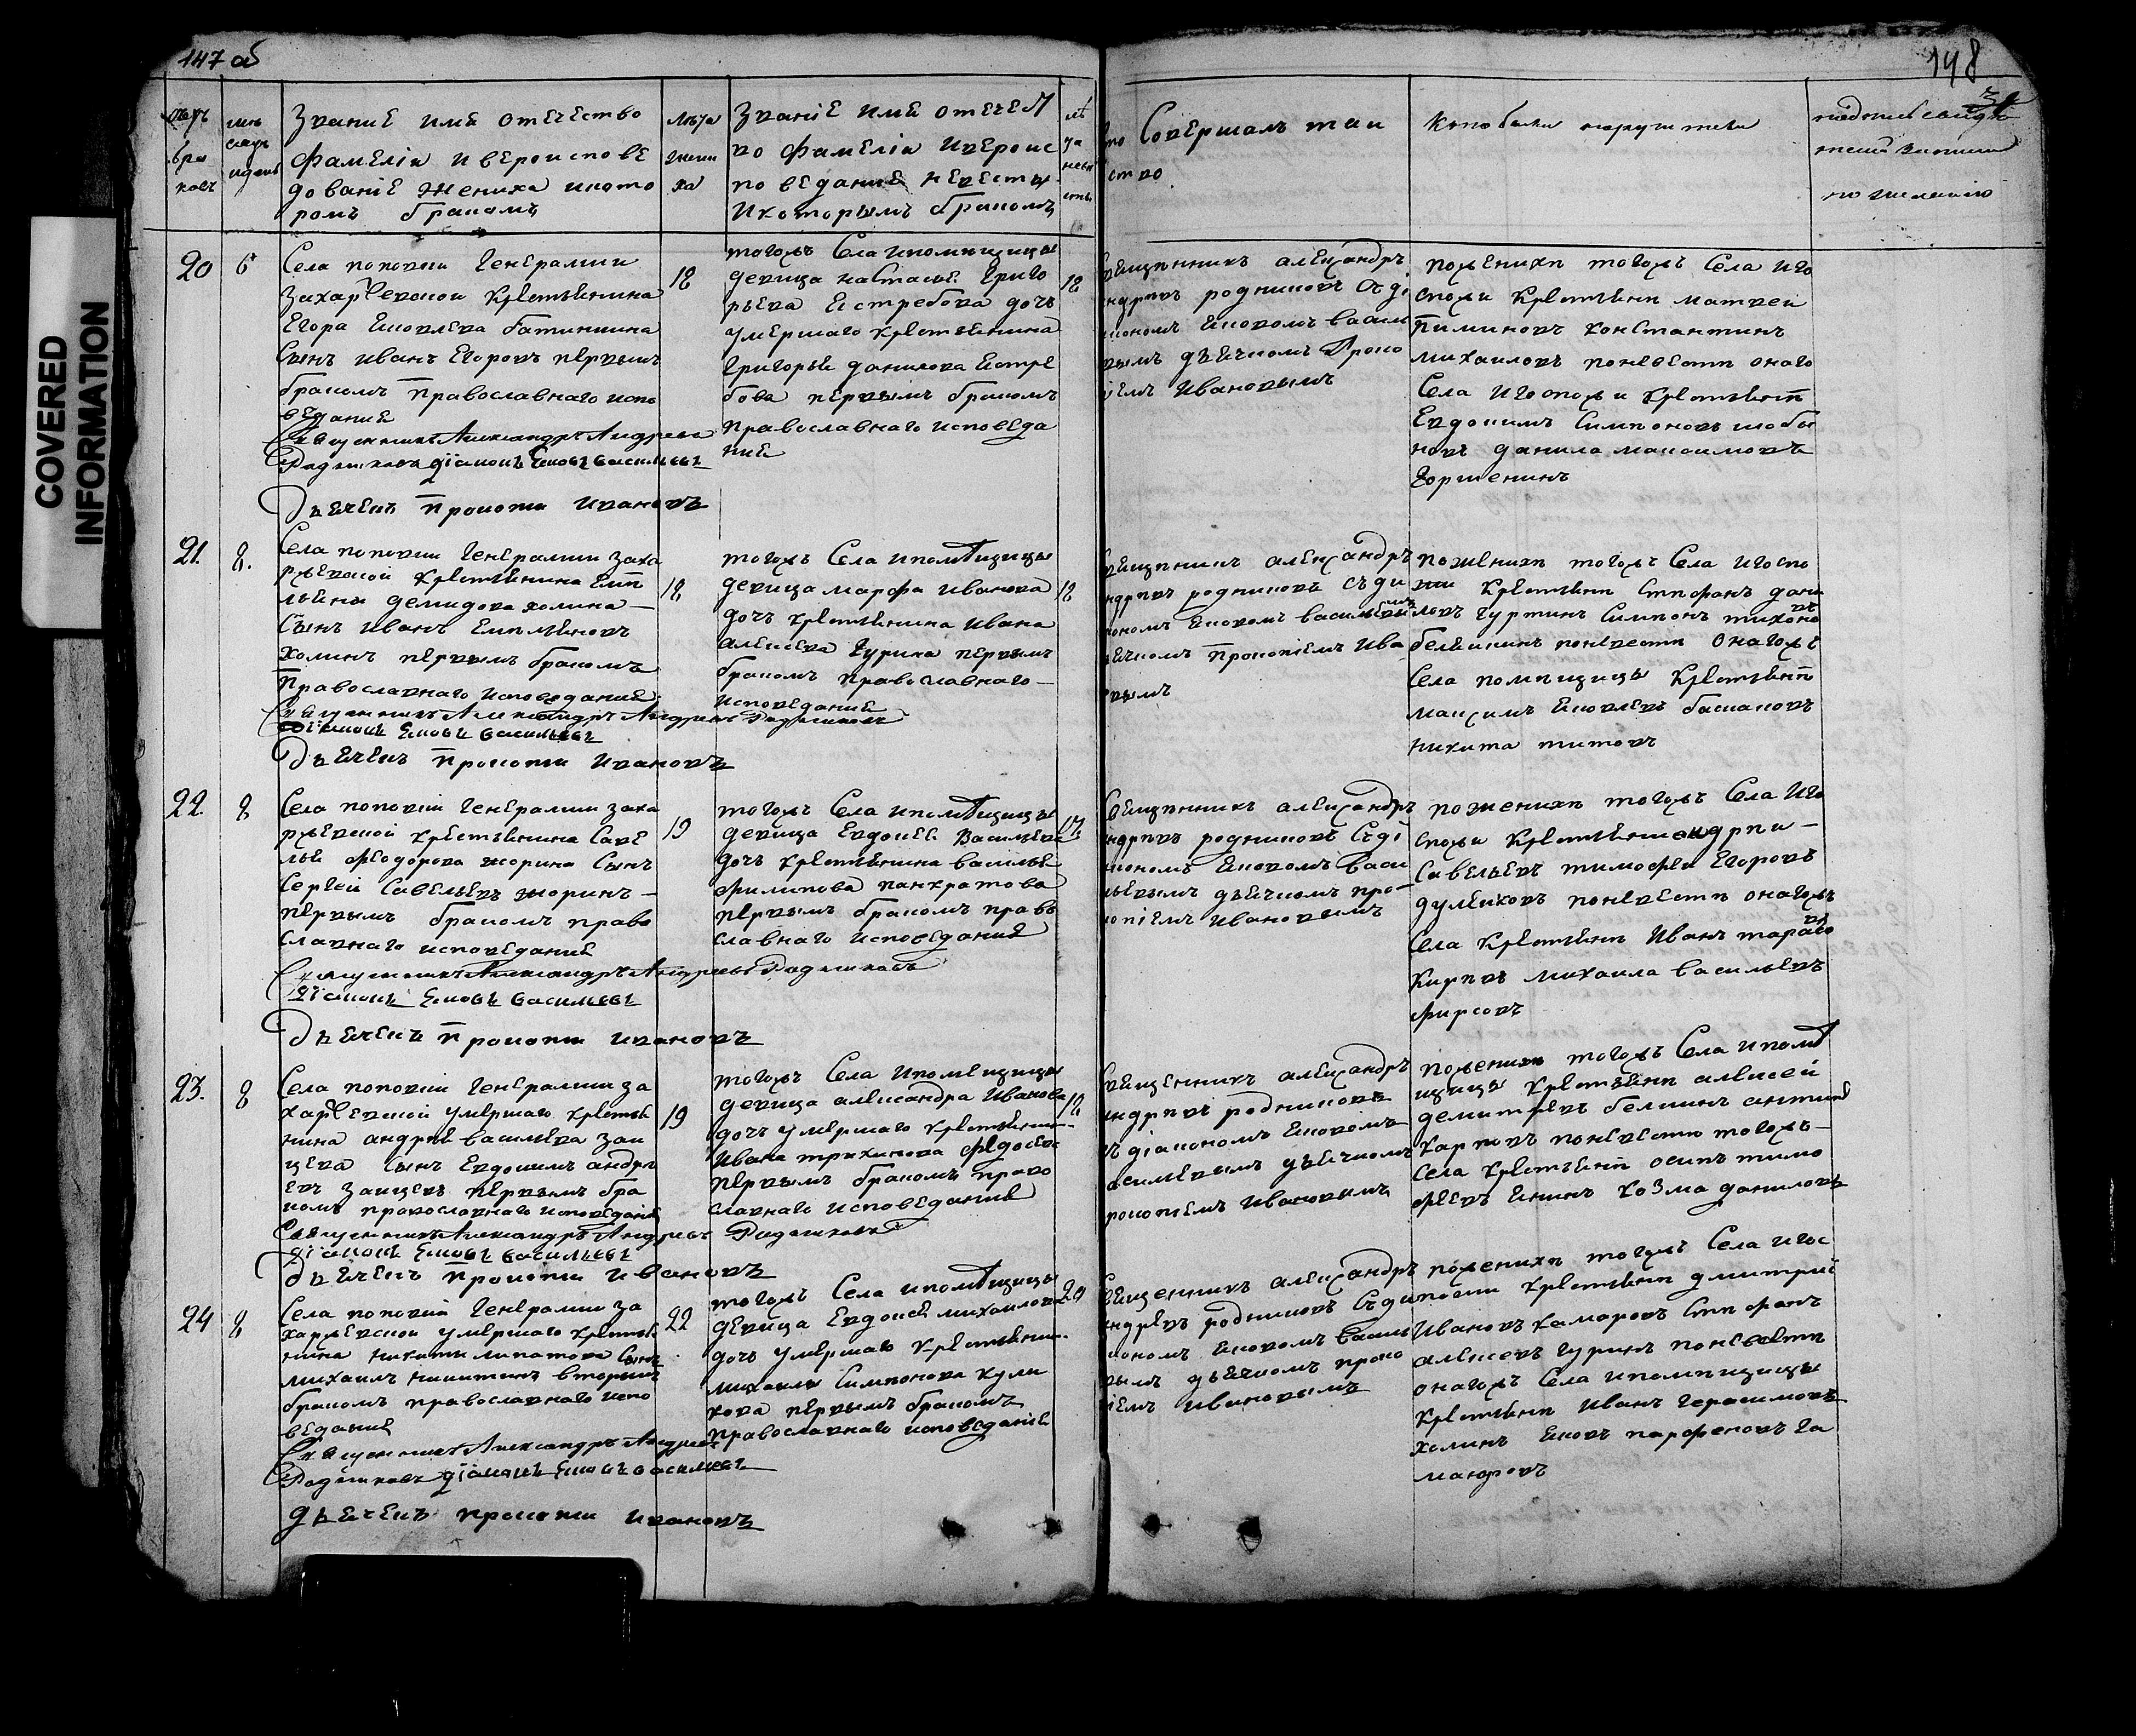 COVERED
INFORMATION
147 об
148
бра
ковъ
Званіе имя отечество
фамелія ивероиспове
дованіе жениха икото
ромъ бракомъ
лѣта
жени
ха
Званіе имя отечест
во фамелія ивероис
поведаніе невесты
Икоторымъ бракомъ
Совершалъ таи
ство
Кто были поручители
по желанію
20
6
Села поповки Генералши
Захарьевской Крестьянина
Егора Яковлева батишкина
Сынъ Иванъ Егоровъ первымъ
бракомъ Православнаго испо
ведание
Священникъ Александръ Андреевъ
Родниковъ діаконъ Яковъ васильевъ
Дьячекъ Прокопи ивановъ
18
тогожъ Села ипомѣщицы
девица настасья Григо
рьева Ястребова дочь
умершаго крестьянина
Григорья данилова Ястре
бова первымъ бракомъ
православнаго исповеда
ния
18
Священникъ алеқандръ
андревъ родниковъ съ ді
акономъ Яковомъ васи
вымъ дьячкомъ Проко
піемъ Ивановымъ
пожених тогожъ Села иго
спожи Крестьяни матвеи
Пиминовъ константинъ
михаиловъ поневести онаго
Села игоспожи крестьяни
Евдокимъ Симионовъ
данила максимовъ
Горшенинъ
21.
8.
Села поповки Генералши заха
рьевской Крестьянина Емѣ
льяна демидова холина
Сынъ Иванъ Емельяновъ
холинъ первымъ бракомъ
Православнаго исповедания
Священникъ Александръ Андреевъ Родниковъ
діаконъ Яковъ васильевъ
Дьячекъ Прокопи ивановъ
18
тогожъ Села ипомѣщицы
девица марфа иванова
дочь крестьянина ивана
алексева Гурина первымъ
бракомъ православнаго
исповедания
18
Священникъ алеқандръ
андревъ родниковъ съ ди
акономъ Яковомъ васильевымъ
дьячкомъ Прокопіемъ Ива
новымъ
пожених тогожъ Села игоспо
жи Крестьяни Стефанъ дани
ловъ Гуртинъ Симионъ тихоновъ
белянинъ поневести онагожъ
Села помещицы крестьяни
максимъ Яковлевъ башановъ
никита титовъ
22.
8
Села поповки Генералши заха
рьевской крестьянина Саве
лья феодорова жорина Сынъ
Сергей Савельевъ жоринъ
первымъ бракомъ право
славнаго исповедания
Священникъ Александръ Андреевъ Родниковъ
Діаконъ Яковъ васильевъ
Дьячекъ Прокопи ивановъ
19
тогожъ Села ипомѣщицы
девица Евдокея Васильева
дочь крестьянина василья
филипова панкратова
первымъ бракомъ право
славнаго исповедания
17
Священникъ алеқандръ
андревъ родниковъ Съ ді
акономъ Яковомъ Васи
льевымъ дьячкомъ про
копіемъ ивановымъ
пожених тогожъ Села иго
спожи Крестьяни андрпи
Савельевъ тимофеи Егоровъ
дуляковъ поневести онагожъ
Села Крестьяни Иванъ тарасовъ
Кирпвъ михаила васильевъ
фирсовъ
23.
8
Села поповки Генералши за
харьевской умершаго крестья
нина андрия васильева заи
цева Сынъ Евдокимъ андре
евъ заицевъ первымъ бра
комъ православнаго исповедания
Священникъ Александръ Андреевъ Родниковъ
діаконъ Яковъ васильевъ
Дьячекъ Прокопи ивановъ
19
тогожъ Села ипомещицы
девица алекандра Иванова
дочь умершаго крестьянина
Ивана трихинова федосев
первымъ бракомъ право
славнаго исповедания
18
Священникъ алеқандръ
андревъ родниковъ
съ діакономъ Яковомъ
васильевымъ дьячкомъ
прокопіемъ Ивановымъ
пожених тогожъ Села ипомѣ
щицы Крестьяни алексей
демитревъ беляинъ антипъ
Карповъ поневести тогожъ
Села крестьяни осипъ тимо
феевъ янинъ козма даниловъ
24
8
Села поповки Генералши за
харьевской умершаго крестья
нина никиты липатова Сынъ
михаилъ никитинъ вторымъ
бракомъ православнаго испо
ведания
Священникъ Александръ Андреевъ
Родниковъ діаконъ Яковъ васильевъ
дьячекъ прокопи ивановъ
22
тогожъ Села ипомѣщицы
девица Евдокея михаилова
дочь умершаго крестьянин
михаилы Симионова кули
кова первымъ бракомъ
православнаго исповедания
20
Священникъ алеқандръ
андревъ родниковъ Съ ди
акономъ Яковомъ Василь
вымъ дьячкомъ проко
піемъ ивановымъ
пожених тогожъ Села игос
пожи крестьяни дмитрий
Ивановъ Камаровъ Стефанъ
алексевъ гуринъ поневести
онагожъ Села ипомпщицы
крестьяни Иванъ Герасимовъ
холинъ Яковъ парфеновъ Га